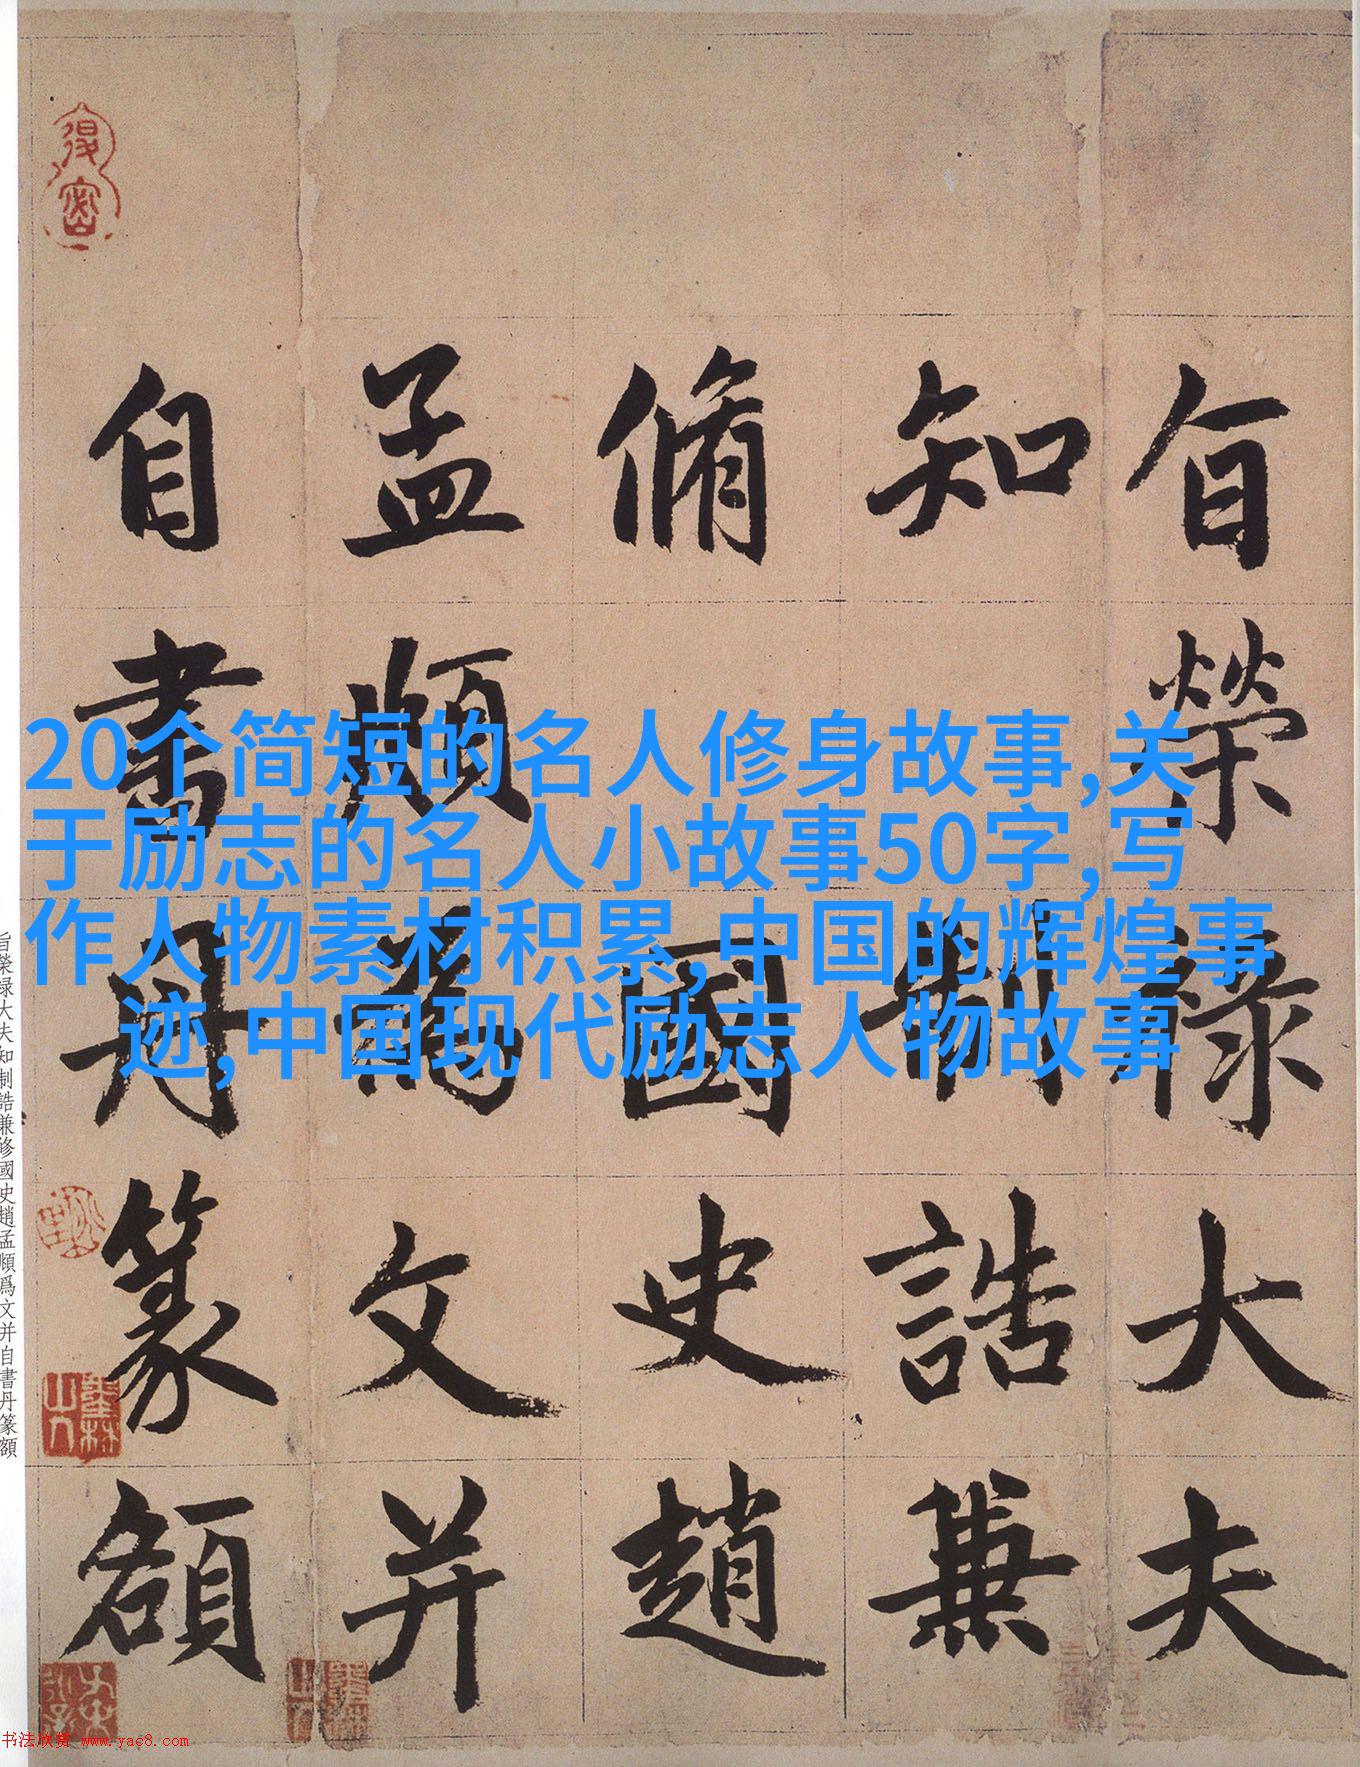 20个简短的名人修身故事,关
于励志的名人小故事50字,写
作人物素材积累,中国的辉煌事
迹,中国现代励志人物故事
旨榮祿大夫
知制誥兼
脩國史趙
孟頫爲文并
自書丹篆額
旨榮祿大夫知制誥兼修國史趙孟頫爲文并自書丹篆額
书法欣赏 www.yac8.com